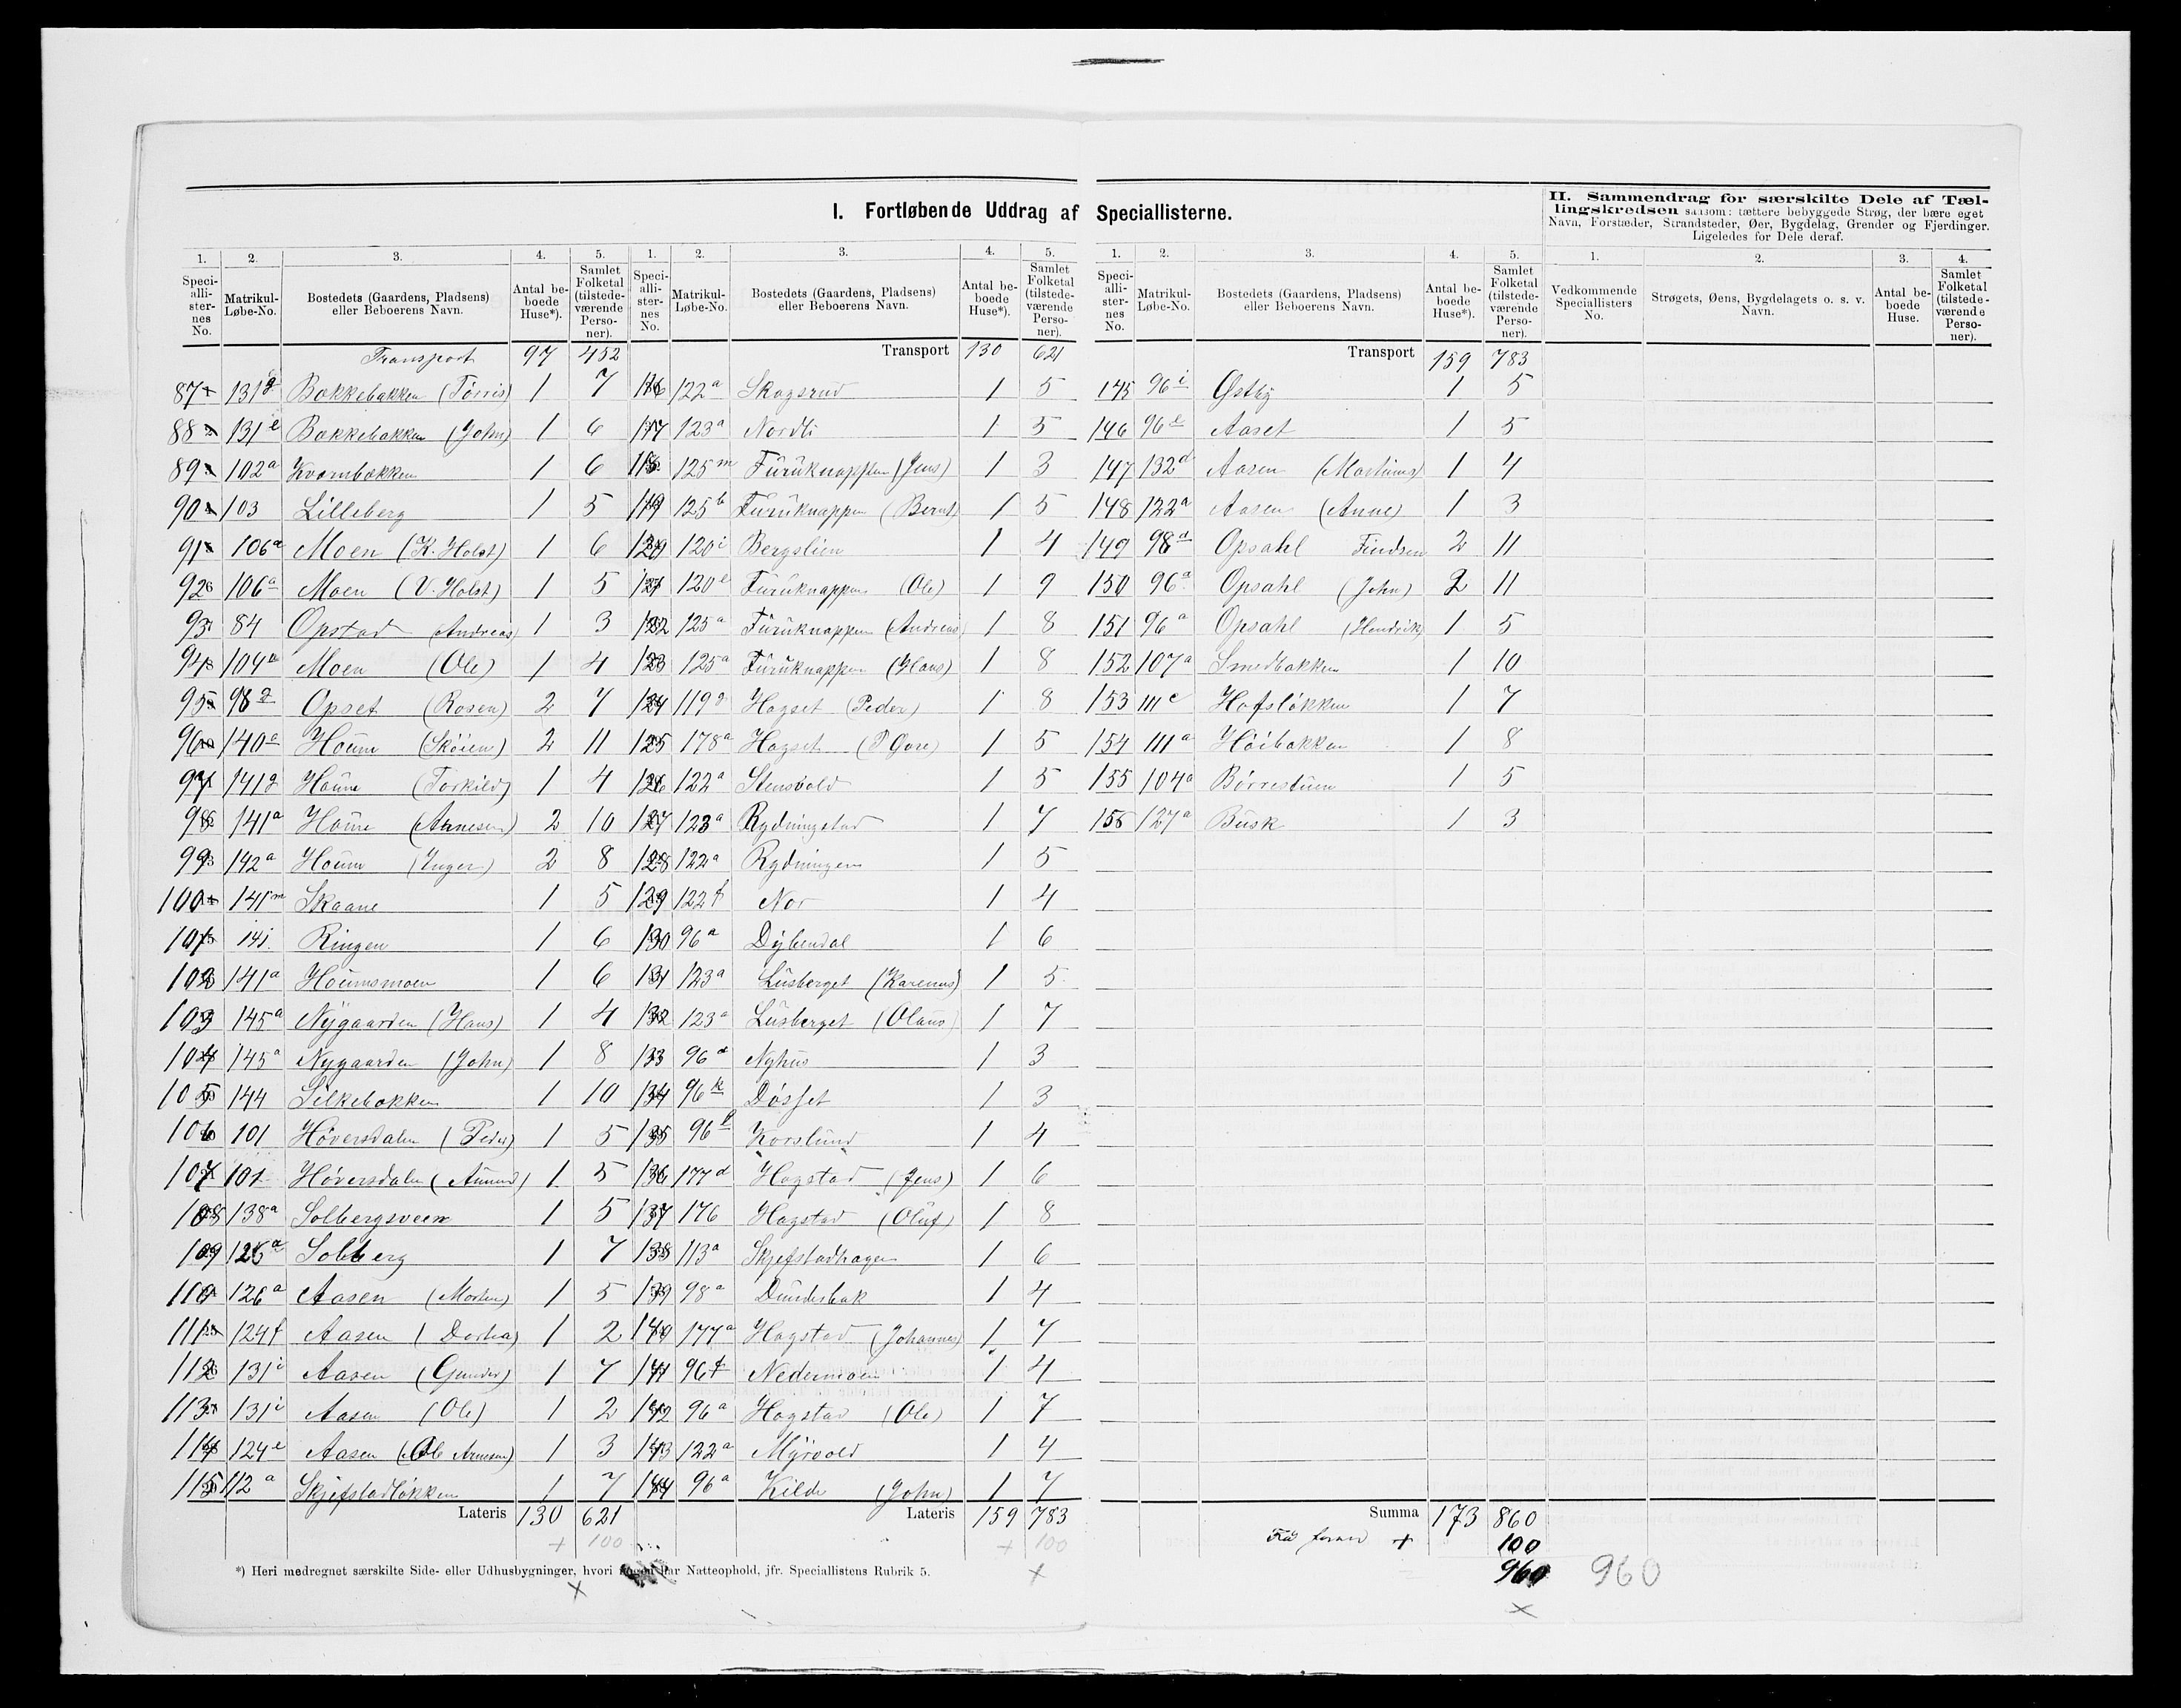 I. Fortløbende Uddrag af Speciallisterne.
II. Sammendrag for særskilte Dele af Tællingskredsen saasom: tættere bebyggede Strøg, der bære eget
Navn, Forstæder, Strandsteder, Øer, Bygdelag, Grender og Fjerdinger.
Ligeledes for Dele deraf.
1. 2. 3. 4. 5.
Speciallisternes No. Matrikul-Løbe-No. Bostedets (Gaardens, Pladsens) eller Beboerens Navn. Antal beboede Huse*). Samlet Folketal (tilstedeværende Personer).
Transport 97 452
87 131g Bakkebakken (Tørris) 1 7
88 131e Bakkebakken (John) 1 6
89 102a Kvornbakken 1 6
90 103 Lilleberg 1 5
91 106a Moen (K. Holst) 1 6
92 106a Moen (V. Holst) 1 5
93 84 Opstad (Andreas) 1 3
94 104a Moen (Ole) 1 4
95 98 Opset (Rosen) 2 7
96 140a Houm (Sköien) 2 11
97 141g Houm (Torkild) 1 4
98 141a Houm (Arnesen) 2 10
99 142a Houm (Inger) 2 8
100 141m Skaane 1 5
101 141 Ringen 1 6
102 141a Houmsmoen 1 6
103 145a Nygaarden (Hans) 1 4
104 145a Nygaarden (John) 1 8
105 144 Silkebakken 1 10
106 101 Höversdalen (Peder) 1 5
107 101 Höversdalen (Amund) 1 5
108 138a Solbergsveen 1 5
109 126a Solberg 1 7
110 126a Aasen (Morten) 1 5
111 124f Aasen (Dorthea) 1 2
112 131i Aasen (Gunder) 1 7
113 131i Aasen (Ole) 1 2
114 124e Aasen (Ole Arnesen) 1 3
115 112a Skjefstadløkken 1 7
Lateris 130 621
+ 100
1. 2. 3. 4. 5.
Speciallisternes No. Matrikul-Løbe-No. Bostedets (Gaardens, Pladsens) eller Beboerens Navn. Antal beboede Huse*). Samlet Folketal (tilstedeværende Personer).
Transport 130 621
116 122a Skogsrud 1 5
117 123a Nordli 1 5
118 125m Furuknappen (Jens) 1 3
119 125b Furuknappen (Bernt) 1 5
120 120i Bergslien 1 4
121 120e Furuknappen (Ole) 1 9
122 125a Furuknappen (Andreas) 1 8
123 125a Furuknappen (Hans) 1 8
124 119g Hagset (Peder) 1 8
125 178a Hagset 1 5
126 122a Stensvold 1 5
127 123a Rydningstad 1 7
128 122a Rydningen 1 5
129 122f Nor 1 4
130 96a Dybendal 1 6
131 123a Lusberget (Karenus) 1 5
132 123a Lusberget (Olaus) 1 7
133 96d Nyhus 1 3
134 96k Døsset 1 3
135 96l Korslund 1 4
136 177d Hagstad (Jens) 1 6
137 176 Hagstad (Oluf) 1 8
138 113a Skjefstadhagen 1 6
139 98a Dundesbak 1 4
140 177a Hagstad (Johannes) 1 7
141 96f Nedermoen 1 4
142 96a Hagstad (Ole) 1 7
143 122a Myrvold 1 4
144 96a Kilde (John) 1 7
Lateris 159 783
+ 100
1. 2. 3. 4. 5.
Speciallisternes No. Matrikul-Løbe-No. Bostedets (Gaardens, Pladsens) eller Beboerens Navn. Antal beboede Huse*). Samlet Folketal (tilstedeværende Personer).
Transport 159 783
145 96i Østby 1 5
146 96e Aaset 1 5
147 132d Aasen (Martinus) 1 4
148 122a Aasen (Anne) 1 3
149 98a Opsahl Findsen 2 11
150 96a Opsahl (John) 2 11
151 96a Opsahl (Hendrik) 1 5
152 107a Smedbakken 1 10
153 111c Hofsløkken 1 7
154 111a Höibakken 1 8
155 104a Börrestuen 1 5
156 127a Busk 1 3
Summa 173 860
+ 100
960 960
1. 2. 3. 4.
Vedkommende Speciallisters No. Strøgets, Øens, Bygdelagets o. s. v. Navn. Antal beboede Huse. Samlet Folketal (tilstedeværende Personer).
*) Heri medregnet særskilte Side- eller Udhusbygninger, hvori nogen har Natteophold, jfr. Speciallistens Rubrik 5.